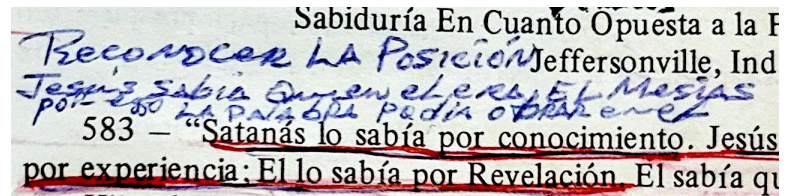 Sabiduría En Cuanto Opuesta a la F
RECONOCER LA POSICIÓN Jeffersonville, Ind
Jesús sabia Quien el era, EL Mesias
por eso LA PALABRA podia obrar en el
583 – “Satanás lo sabía por conocimiento. Jesús
por experiencia; El lo sabía por Revelación. El sabía qu